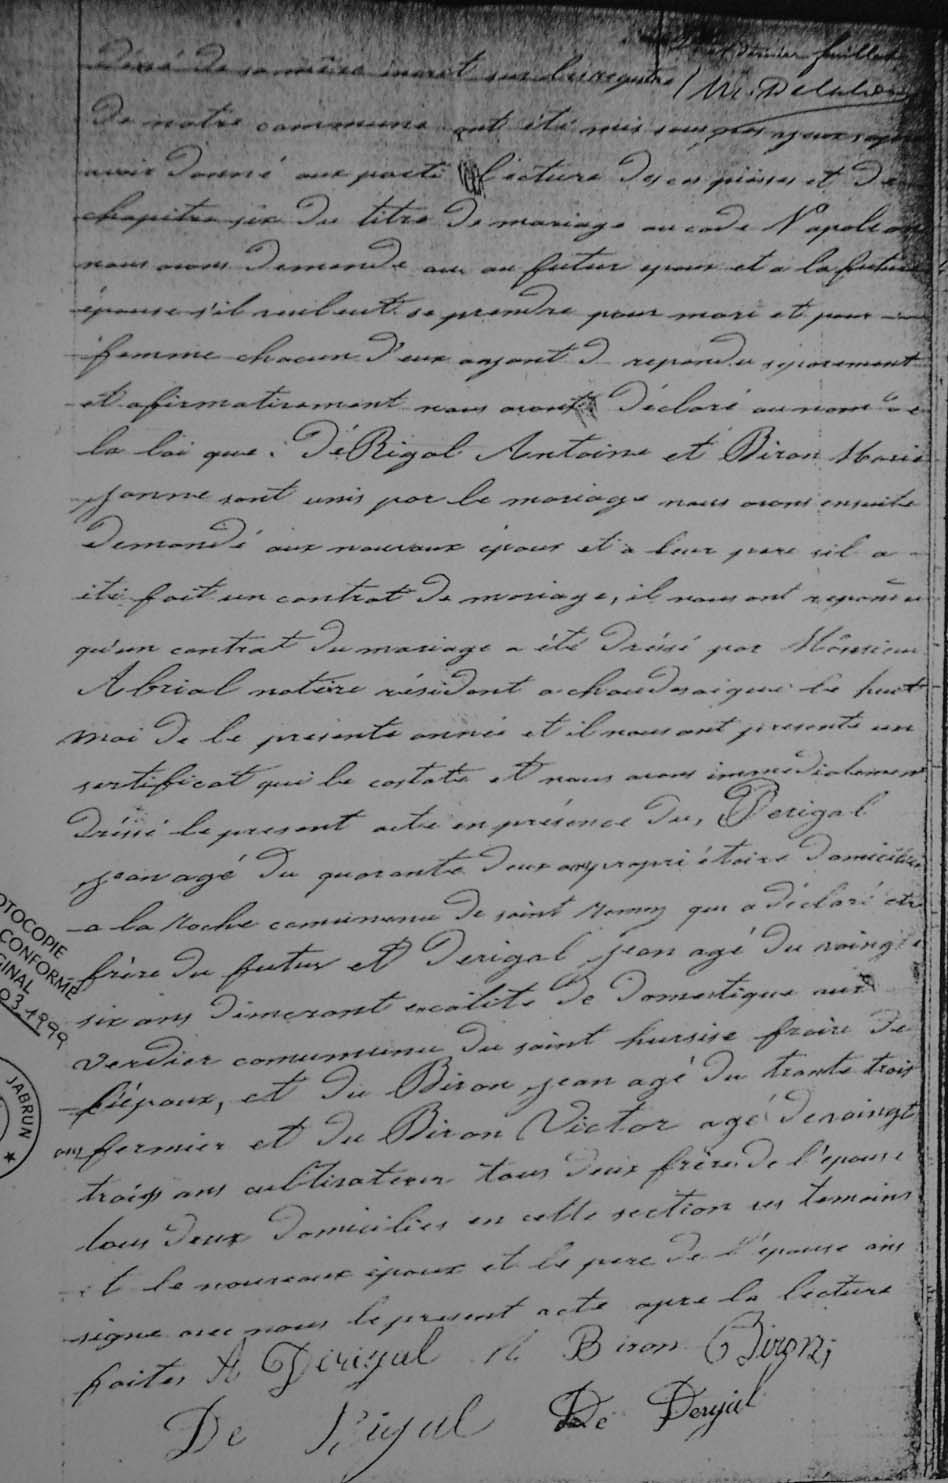 dernier feuillet
décé de sa mère inscrit sur les registre
de notre commune ont été mis sous nos yeux apre
avoir donné aux parti lecture de ces pièses et du
chapitre six du titre de mariage au code Napoleon
nous avons demende aux au futur epoux et a la future
épouse s'il veulent se prendre pour mari et pour
femme chacun d'eux ayant d repondu séparement
et afirmativement nous avons déclaré au nom de
la loi que DéRigal Antoine et Biron Marie
Janne sont unis par le mariage nous avons ensuite
demandé aux nouvaux époux et a leur pere sil a
été fait un contrat de mariage, il nous ont repondu
qu'un contrat du mariage a été dréssé par Monsieur
Abrial notére résident a chaudesaigue le huit
mai de le présente année et il nous ont presenté un
sertificat qui le costate et nous avons immédiatement
dréssé le present acte en présence du, Derigal
jean agé du quarante deux ans propriétaire domicilie
a la Roche comunenu de saint Remmy qui a déclaré etre
frère du futur et Derigal jean agé du vaingt
six ans demerant en calité de domestique au
verdier comumunu du saint hursise fraire de
l'époux, et du Biron jean agé du trante trois
ans fermier et du Biron Victor agé de vaingt
trois ans cultivateur tous deux frère de l'épouse
tous deux domiciliés en cette section ses temoins
et le nouveaux époux et le pere de l'épouse ons
signe avec nous le present acte apre la lecture
faites A Derigal M Biron Biron
De Rigal De Derigal
OTOCOPIE
CONFORME
GINAL
03.1999
JABRUN